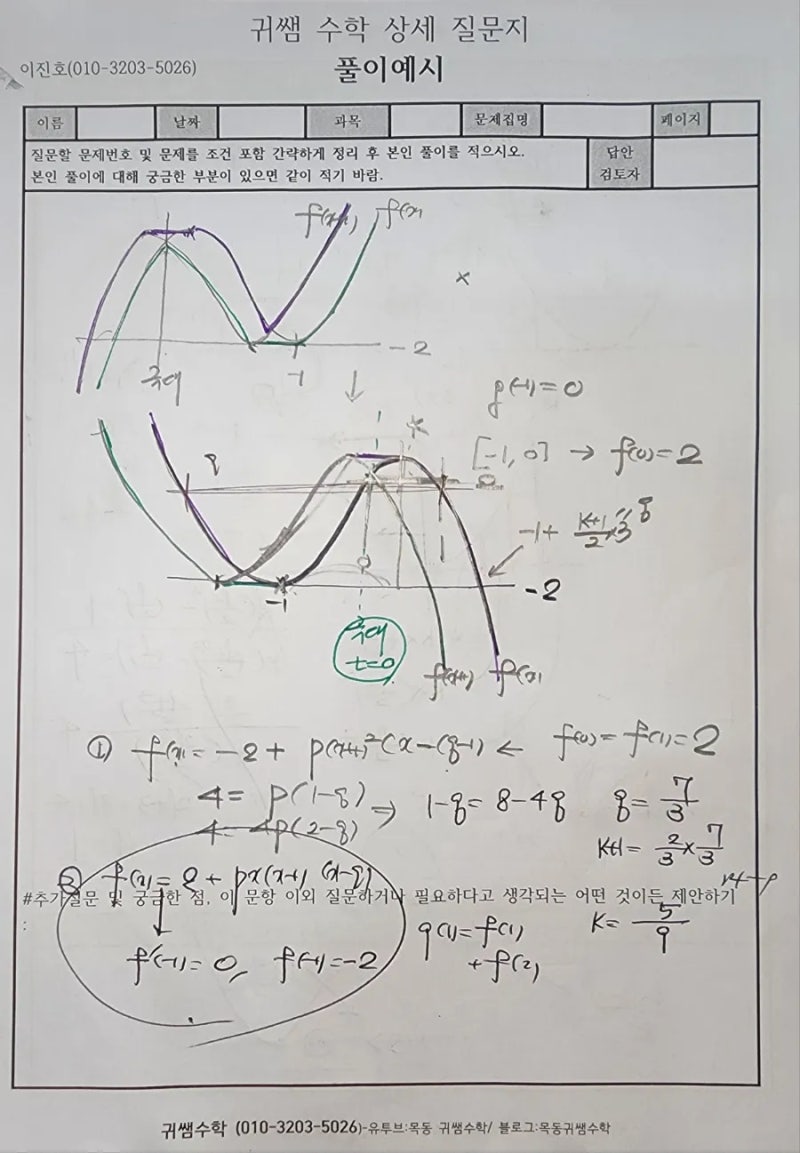 귀쌤 수학 상세 질문지
이진호(010-3203-5026)
풀이예시
이름 날짜 과목 문제집명 페이지
질문할 문제번호 및 문제를 조건 포함 간략하게 정리 후 본인 풀이를 적으시오.
본인 풀이에 대해 궁금한 부분이 있으면 같이 적기 바람.
답안
검토자
f(x+1) f(x)
-2
극대 -1
g(-1)=0
[-1, 0] → f(0)=2
8 k
-1+ (k+1)/2 ×3
0 1
-1 -2
극대
t=0
f(x+1) f(x)
① f(x)=-2+ p(x+1)²(x-(q-1)) ← f(0)=f(1)=2
4= p(1-q) ⇒ 1-q=8-4q q=7/3
4=4p(2-q)
k+1= 2/3×7/3
② f(x)=2+px(x-1)(x-q)
#추가질문 및 궁금한 점, 이 문항 이외 질문하거나 필요하다고 생각되는 어떤 것이든 제안하기
:
k= 5/9
f'(-1)=0, f(-1)=-2
g(1)=f(1)
+f(2)
귀쌤수학 (010-3203-5026)-유투브:목동 귀쌤수학/ 블로그:목동귀쌤수학